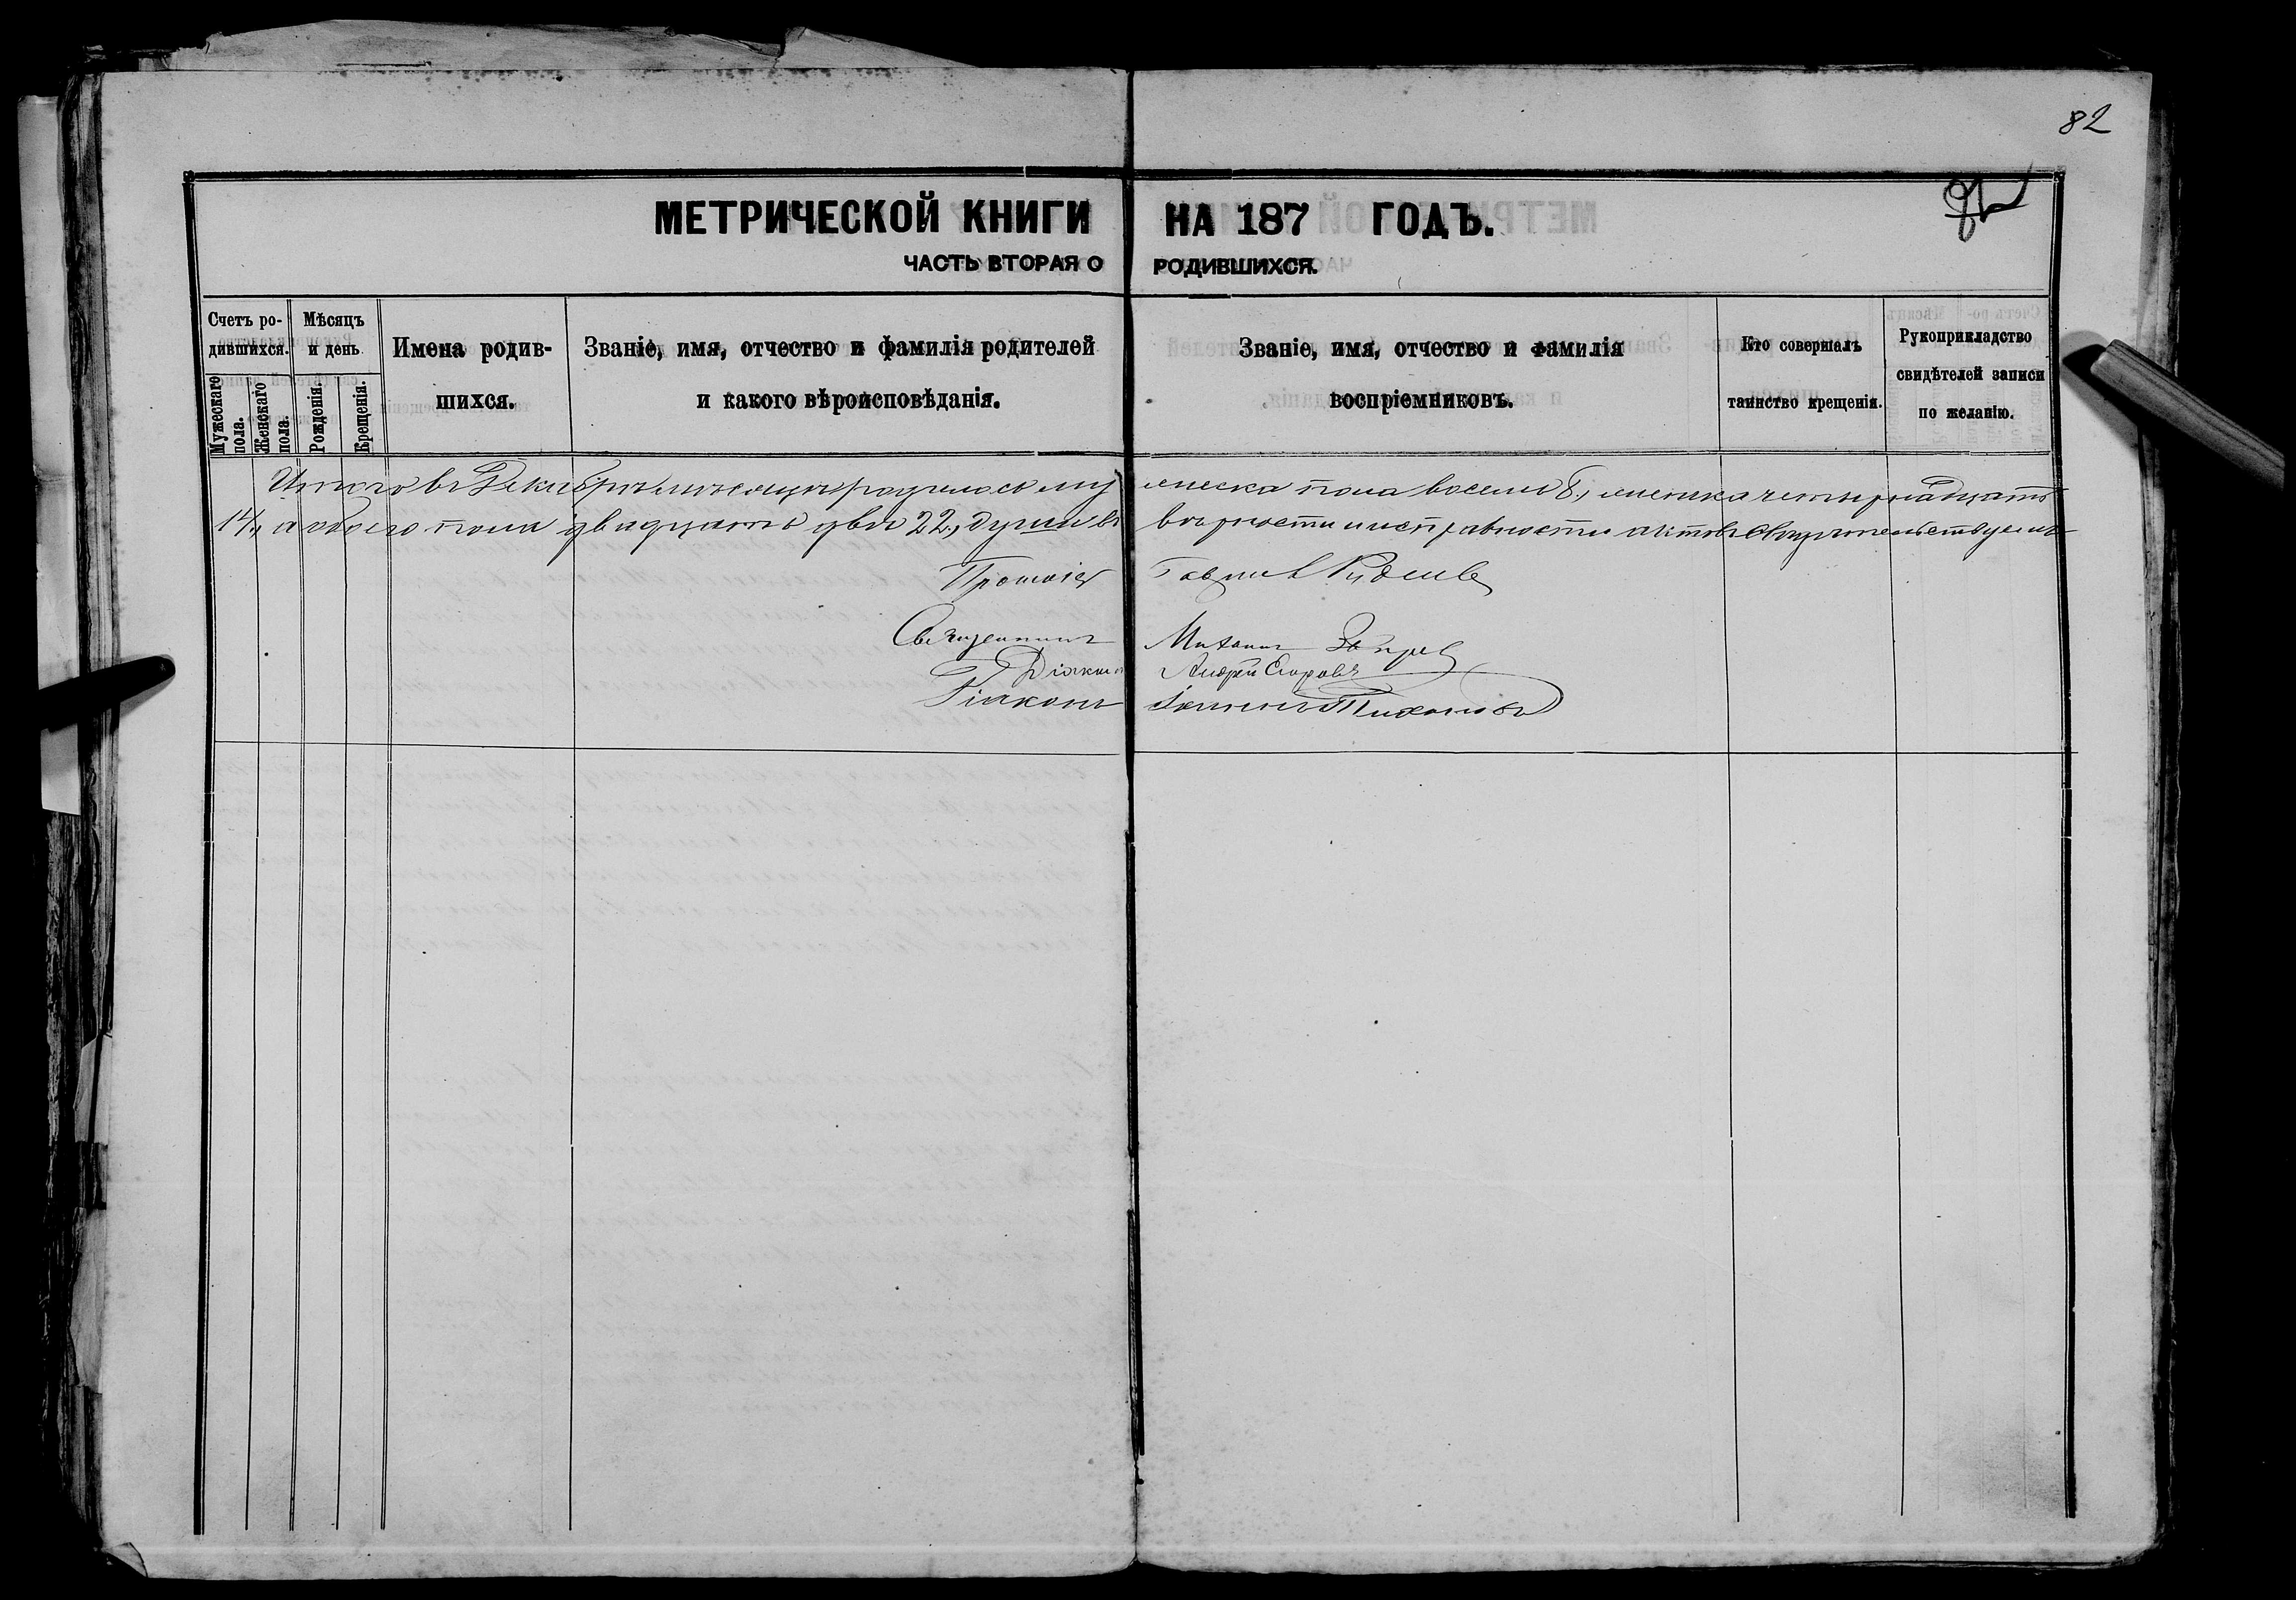 82
МЕТРИЧЕСКОЙ КНИГИ НА 187 ГОДЪ.
ЧАСТЬ ВТОРАЯ О РОДИВШИХСЯ.
Счетъ ро-
дившихся.
Мужескаго
пола.
Женскаго
пола.
Мѣсяцъ
и день
Рожденія.
Крещенія.
Имена родив-
шихся.
Званіе, имя, отчество и фамилія родителей
и какого вѣроисповѣданія.
Званіе, имя, отчество и фамилія
воспріемниковъ.
Кто совершалъ
таинство крещенія.
Рукоприкладство
свидѣтелей записи
по желанію.
Итого въ Декабрѣ мѣсяцѣ родилось мужеска пола восемь 8, женска четырнадцать
14, а обоего пола двадцать два 22, души въ вѣрности и исправности актовъ свидѣтельствуемъ
Протоіер Гавриил
Священникъ Михаилъ
Діаконъ Андрей Егоровъ
Діаконъ Іоаннъ Тихоновъ